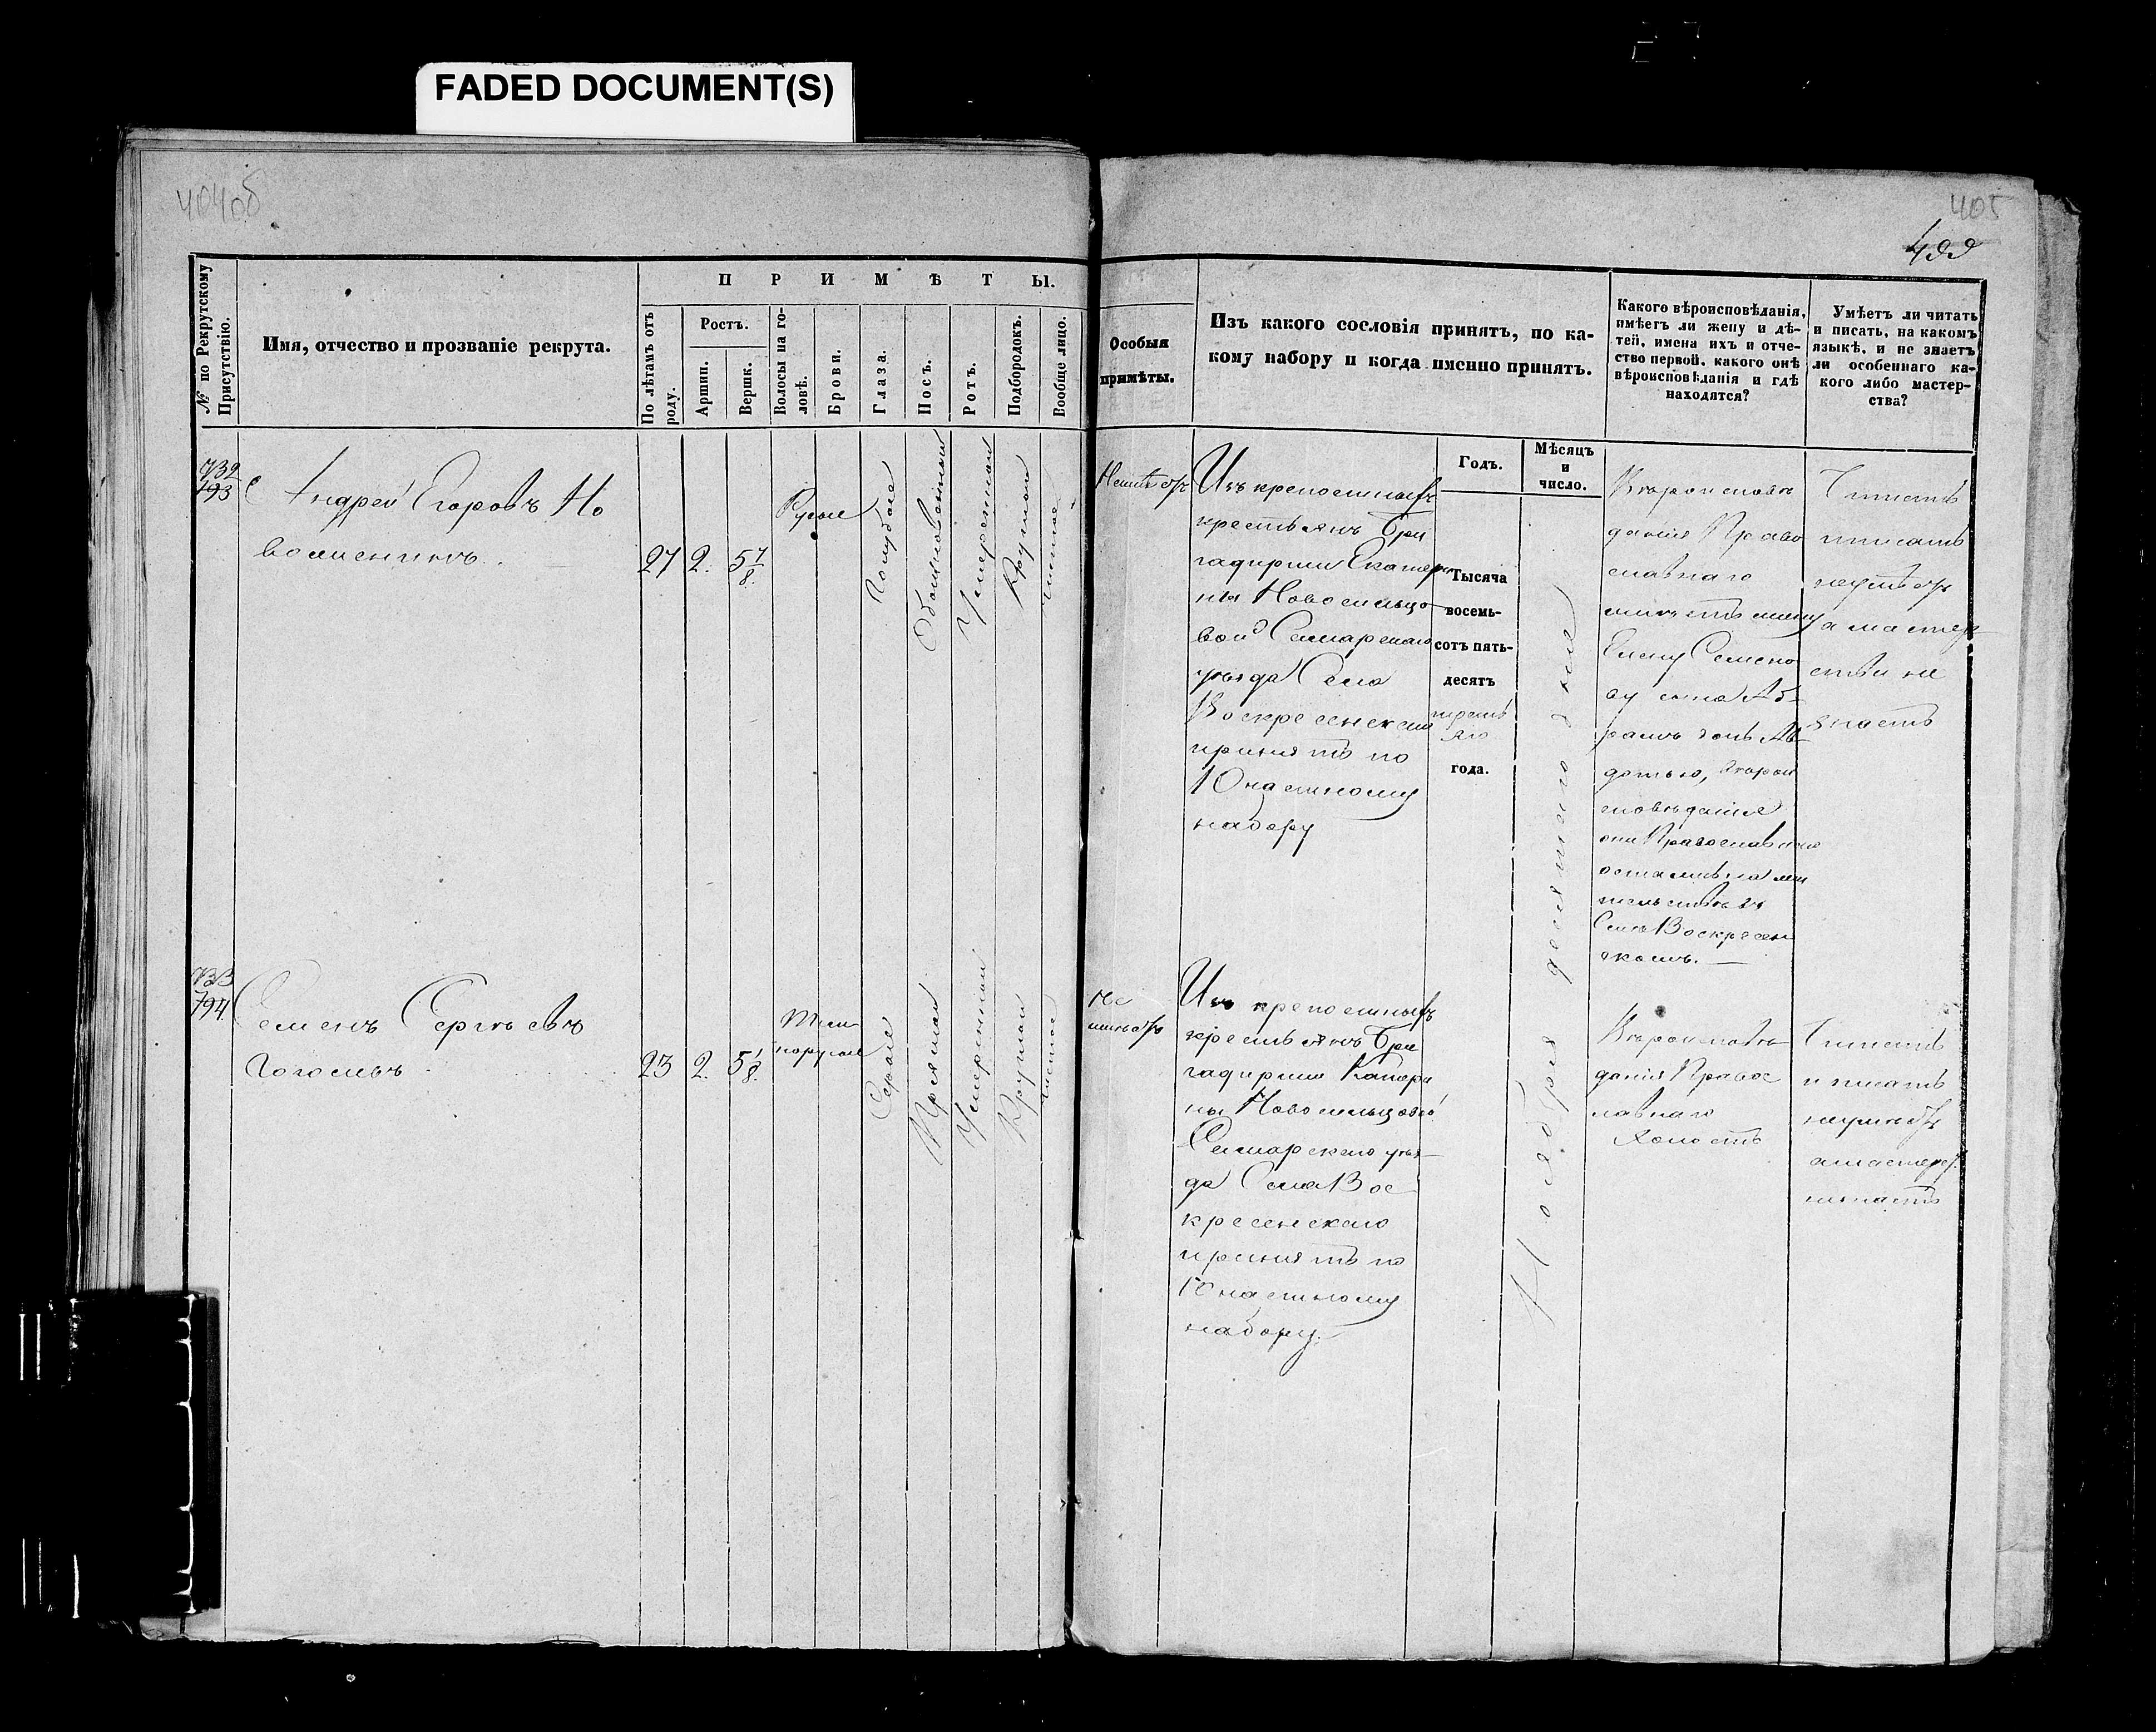 FADED DOCUMENT(S)
404об
405
499
№ по Рекрутскому Присутствію.
Имя, отчество и прозваніе рекрута.
ПРИМѢТЫ.
По лѣтамъ отъ роду.
Ростъ.
Аршин.
Вершк.
Волосы на головѣ.
Брови.
Глаза.
Носъ.
Ротъ.
Подбородокъ.
Вообще лицо.
Особыя
примѣты.
Изъ какого сословія принятъ, по ка-
кому набору и когда именно принятъ.
Годъ.
Мѣсяцъ
и
число.
Какого вѣроисповѣданія,
имѣетъ ли жену и дѣ-
тей, имена ихъ и отче-
ство первой, какого онѣ
вѣроисповѣданія и гдѣ
находятся?
Умѣетъ ли читать
и писать, на какомъ
языкѣ, и не знаетъ
ли особеннаго ка-
кого либо мастер-
ства?
732
793
Андрей Егоровъ Но
27
2.
5 7/8.
Русые
Голубые
Обыкновенный
Умеренной
Круглой
чистое
Изъ крепостныхъ
крестьянъ Бри
гадирши Екатери
ны Новосильцо
вой Самарскаго
уезда Села
Воскресенскаго
принятъ по
10 частному
набору
Тысяча
восемь-
сотъ пять-
десятъ
года.
Ноября десятого дня
Вероисповѣ
данія Право
славнаго
имѣетъ жену
Елену Семено
ву сына Аб
рама дочь Ав
дотью, верои
споведаніе
они Православнаго
Селе Воскресен
скомъ.
Читать
и писать
неумѣетъ
а мастер
ства не
знаетъ
733
794
Семенъ Сергѣевъ
Гоголевъ
23
2.
5 1/8.
Тем
норусые
Серые
Прямой
Умеренной
Круглой
чистое
Не
имѣетъ
Изъ крепостныхъ
крестьянъ Бри
гадирши Катери
ны Новосильцовой
Самарскаго уез
да Села Вос
кресенскаго
принятъ по
10 частному
набору.
Вероисповѣ
данія Правос
лавнаго
холостъ
Читать
и писать
неумѣетъ
а мастерс.
незнаетъ